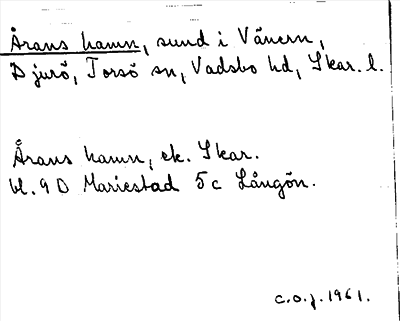 Årans hamn, sund i Vänern,
Djurö, Torsö sn, Vadsbo hd, Skar. l.
Årans hamn, ek. Skar.
bl. 9 D Mariestad 5 c Långön.
c.o.j. 1961.